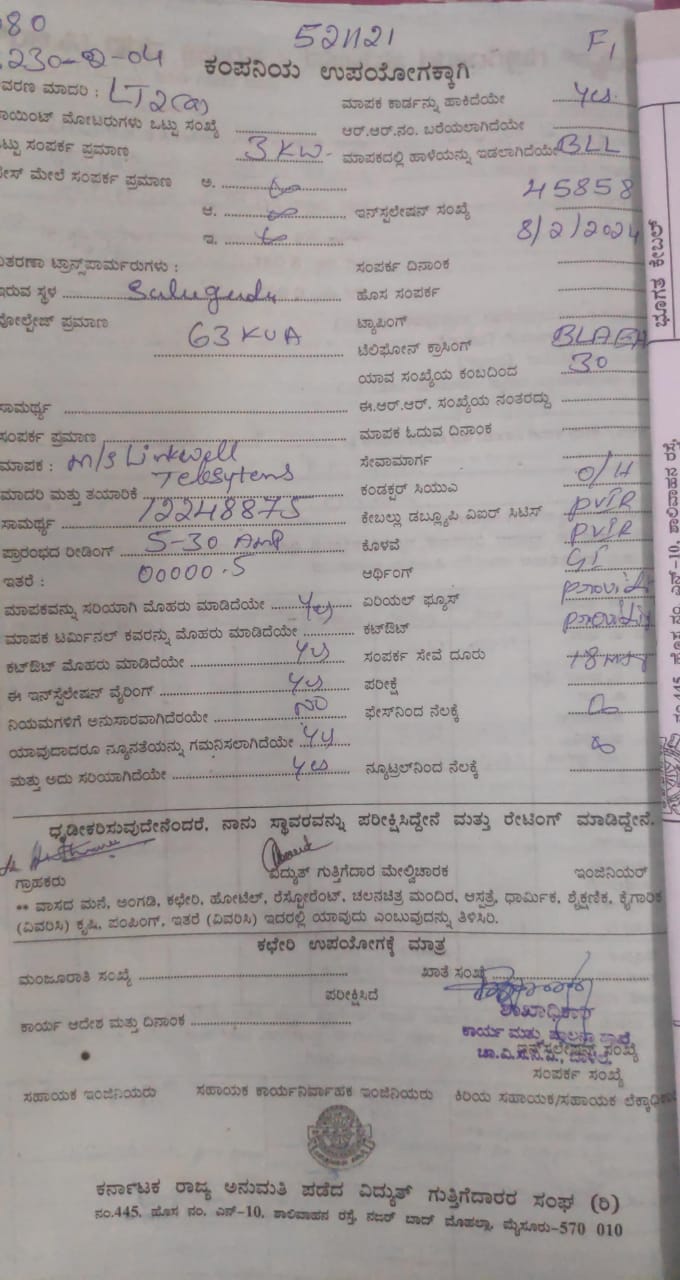 080
521121
F1
230-2-04
ಕಂಪನಿಯ ಉಪಯೋಗಕ್ಕಾಗಿ
ವರಣ ಮಾದರಿ : LT2(a)
ಮಾಪಕ ಕಾರ್ಡನ್ನು ಹಾಕಿದೆಯೇ Yes
ಾಯಿಂಟ್ ಮೋಟರುಗಳು ಒಟ್ಟು ಸಂಖ್ಯೆ
ಆರ್.ಆರ್.ನಂ. ಬರೆಯಲಾಗಿದೆಯೇ
ಟ್ಟು ಸಂಪರ್ಕ ಪ್ರಮಾಣ 3KW-
ಮಾಪಕದಲ್ಲಿ ಹಾಳೆಯನ್ನು ಇಡಲಾಗಿದೆಯೇ BLL
ೇಸ್ ಮೇಲೆ ಸಂಪರ್ಕ ಪ್ರಮಾಣ ಅ.
45858
ಆ.
ಇನ್‌ಸ್ಪಲೇಷನ್ ಸಂಖ್ಯೆ
ಇ.
8/2/2024
ಿತರಣಾ ಟ್ರಾನ್ಸ್‌ಪಾರ್ಮರುಗಳು :
ಸಂಪರ್ಕ ದಿನಾಂಕ
ಇರುವ ಸ್ಥಳ Salugundu
ಹೊಸ ಸಂಪರ್ಕ
ವೋಲ್ಟೇಜ್ ಪ್ರಮಾಣ 63 KVA
ಟ್ಯಾಪಿಂಗ್
ಟೆಲಿಫೋನ್ ಕ್ರಾಸಿಂಗ್
ಯಾವ ಸಂಖ್ಯೆಯ ಕಂಬದಿಂದ 30
ಸಾಮರ್ಥ್ಯ
ಈ.ಆರ್.ಆರ್. ಸಂಖ್ಯೆಯ ನಂತರದ್ದು
ಸಂಪರ್ಕ ಪ್ರಮಾಣ
ಮಾಪಕ ಓದುವ ದಿನಾಂಕ
ಮಾಪಕ : M/s Linkwell
Telesytems
ಸೇವಾಮಾರ್ಗ
ಮಾದರಿ ಮತ್ತು ತಯಾರಿಕೆ 12248875
ಕಂಡಕ್ಟರ್ ಸಿಯುಎ O/H
ಸಾಮರ್ಥ್ಯ
ಕೇಬಲ್ಲು ಡಬ್ಲ್ಯೂಪಿ ವಿಐರ್ ಸಿಟಿಸ್
ಪ್ರಾರಂಭದ ರೀಡಿಂಗ್ 5-30 Amp
ಕೊಳವೆ
ಇತರೆ : 00000.5
ಆರ್ಥಿಂಗ್ GI
ಮಾಪಕವನ್ನು ಸರಿಯಾಗಿ ಮೊಹರು ಮಾಡಿದೆಯೇ Yes
ಏರಿಯಲ್ ಫ್ಯೂಸ್
ಮಾಪಕ ಟರ್ಮಿನಲ್ ಕವರನ್ನು ಮೊಹರು ಮಾಡಿದೆಯೇ
ಕಟ್‌ಔಟ್
ಕಟ್‌ಔಟ್ ಮೊಹರು ಮಾಡಿದೆಯೇ Yes
ಸಂಪರ್ಕ ಸೇವೆ ದೂರು
ಈ ಇನ್‌ಸ್ಪೆಲೇಷನ್ ವೈರಿಂಗ್ Yes
ಪರೀಕ್ಷೆ
ನಿಯಮಗಳಿಗೆ ಅನುಸಾರವಾಗಿದೆರಯೇ NO
ಫೇಸ್‌ನಿಂದ ನೆಲಕ್ಕೆ
ಯಾವುದಾದರೂ ನ್ಯೂನತೆಯನ್ನು ಗಮನಿಸಲಾಗಿದೆಯೇ Yes
ಮತ್ತು ಅದು ಸರಿಯಾಗಿದೆಯೇ Yes
ನ್ಯೂಟ್ರಲ್‌ನಿಂದ ನೆಲಕ್ಕೆ
ಧೃಡೀಕರಿಸುವುದೇನೆಂದರೆ, ನಾನು ಸ್ಥಾವರವನ್ನು ಪರೀಕ್ಷಿಸಿದ್ದೇನೆ ಮತ್ತು ರೇಟಿಂಗ್ ಮಾಡಿದ್ದೇನೆ.
ಗ್ರಾಹಕರು
ವಿದ್ಯುತ್ ಗುತ್ತಿಗೆದಾರ ಮೇಲ್ವಿಚಾರಕ
ಇಂಜಿನಿಯರ್
** ವಾಸದ ಮನೆ, ಅಂಗಡಿ, ಕಛೇರಿ, ಹೋಟೆಲ್, ರೆಸ್ಟೋರೆಂಟ್, ಚಲನಚಿತ್ರ ಮಂದಿರ, ಆಸ್ಪತ್ರೆ, ಧಾರ್ಮಿಕ, ಶೈಕ್ಷಣಿಕ, ಕೈಗಾರಿಕ
(ವಿವರಿಸಿ) ಕೃಷಿ, ಪಂಪಿಂಗ್, ಇತರೆ (ವಿವರಿಸಿ) ಇದರಲ್ಲಿ ಯಾವುದು ಎಂಬುವುದನ್ನು ತಿಳಿಸಿರಿ.
ಕಛೇರಿ ಉಪಯೋಗಕ್ಕೆ ಮಾತ್ರ
ಮಂಜೂರಾತಿ ಸಂಖ್ಯೆ
ಖಾತೆ ಸಂಖ್ಯೆ
ಪರೀಕ್ಷಿಸಿದೆ
ಶಾಖಾಧಿಕಾರಿ
ಕಾರ್ಯ ಆದೇಶ ಮತ್ತು ದಿನಾಂಕ
ಕಾರ್ಯ ಮತ್ತು ಪಾಲನಾ ಶಾಖೆ
ಇನ್‌ಸ್ಪಲೇಷನ್ ಸಂಖ್ಯೆ
ಸಂಪರ್ಕ ಸಂಖ್ಯೆ
ಸಹಾಯಕ ಇಂಜಿನಿಯರು
ಸಹಾಯಕ ಕಾರ್ಯನಿರ್ವಾಹಕ ಇಂಜಿನಿಯರು
ಕಿರಿಯ ಸಹಾಯಕ/ಸಹಾಯಕ ಲೆಕ್ಕಾಧಿಕಾ
ಕರ್ನಾಟಕ ರಾಜ್ಯ ಅನುಮತಿ ಪಡೆದ ವಿದ್ಯುತ್ ಗುತ್ತಿಗೆದಾರರ ಸಂಘ (ರಿ)
ನಂ.445, ಹೊಸ ನಂ. ಎನ್-10, ಶಾಲಿವಾಹನ ರಸ್ತೆ, ನಜರ್ ಬಾದ್ ಮೊಹಲ್ಲಾ, ಮೈಸೂರು-570 010
ಭೂಗತ ಕೇಬಲ್